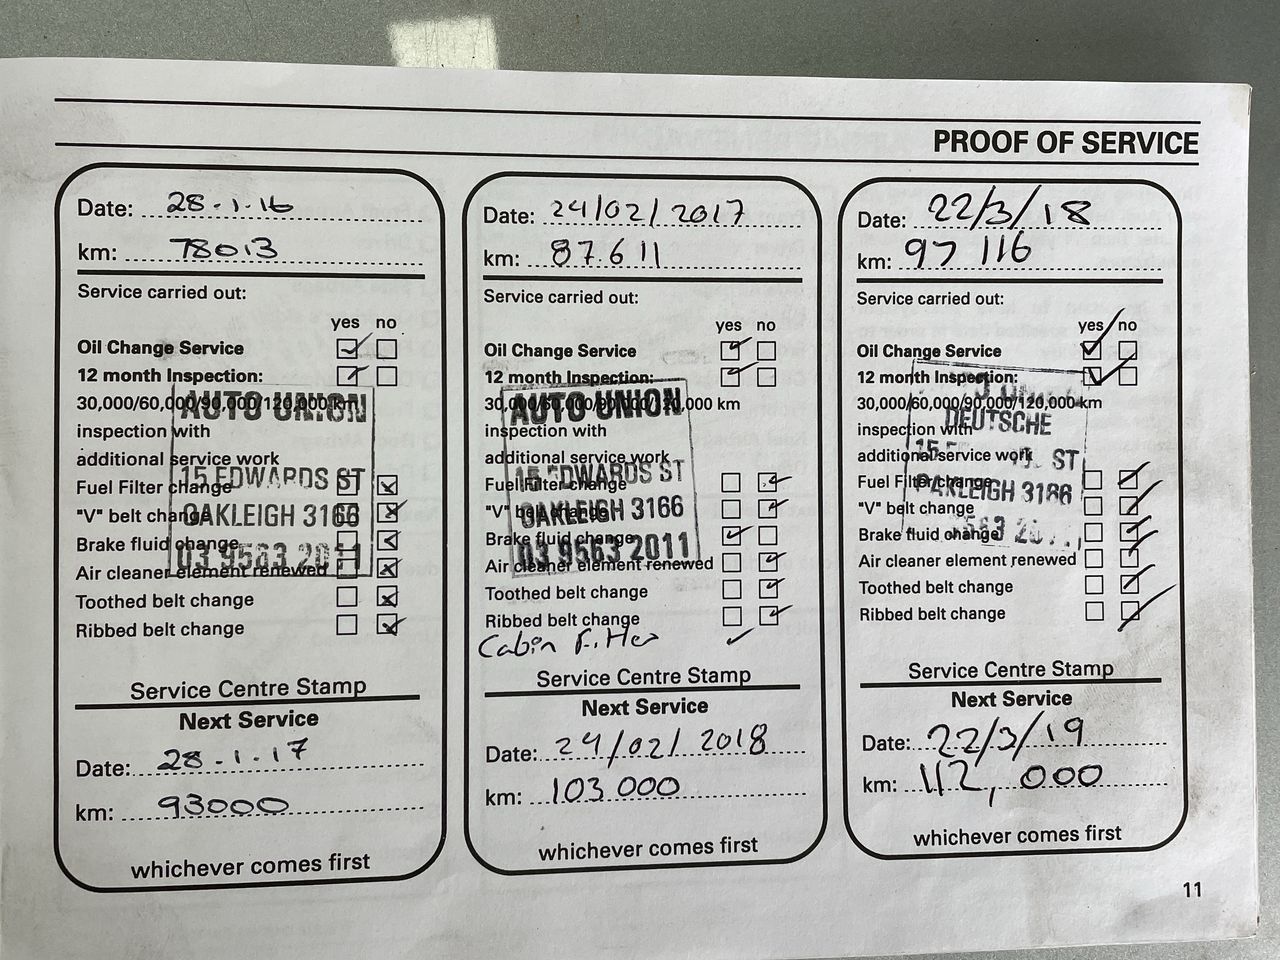 PROOF OF SERVICE
Date: 28.1.16
km: 78013
Service carried out:
yes no
Oil Change Service
12 month Inspection:
30,000/60,000/90,000/120,000 km
inspection with
additional service work
Fuel Filter change
"V" belt change
Brake fluid change
Air cleaner element renewed
Toothed belt change
Ribbed belt change
AUTO UNION
15 EDWARDS ST
OAKLEIGH 3166
03 9563 2011
Service Centre Stamp
Next Service
Date: 28.1.17
km: 93000
whichever comes first
Date: 24/02/2017
km: 87.611
Service carried out:
yes no
Oil Change Service
12 month Inspection:
30,000/60,000/90,000/120,000 km
inspection with
additional service work
Fuel Filter change
"V" belt change
Brake fluid change
Air cleaner element renewed
Toothed belt change
Ribbed belt change
Cabin Filter
AUTO UNION
15 EDWARDS ST
OAKLEIGH 3166
03 9563 2011
Service Centre Stamp
Next Service
Date: 24/02/2018
km: 103000
whichever comes first
Date: 22/3/18
km: 97 116
Service carried out:
yes no
Oil Change Service
12 month Inspection:
30,000/60,000/90,000/120,000 km
inspection with
additional service work
Fuel Filter change
"V" belt change
Brake fluid change
Air cleaner element renewed
Toothed belt change
Ribbed belt change
DEUTSCHE
15 ST
OAKLEIGH 3166
Service Centre Stamp
Next Service
Date: 22/3/19
km: 112,000
whichever comes first
11